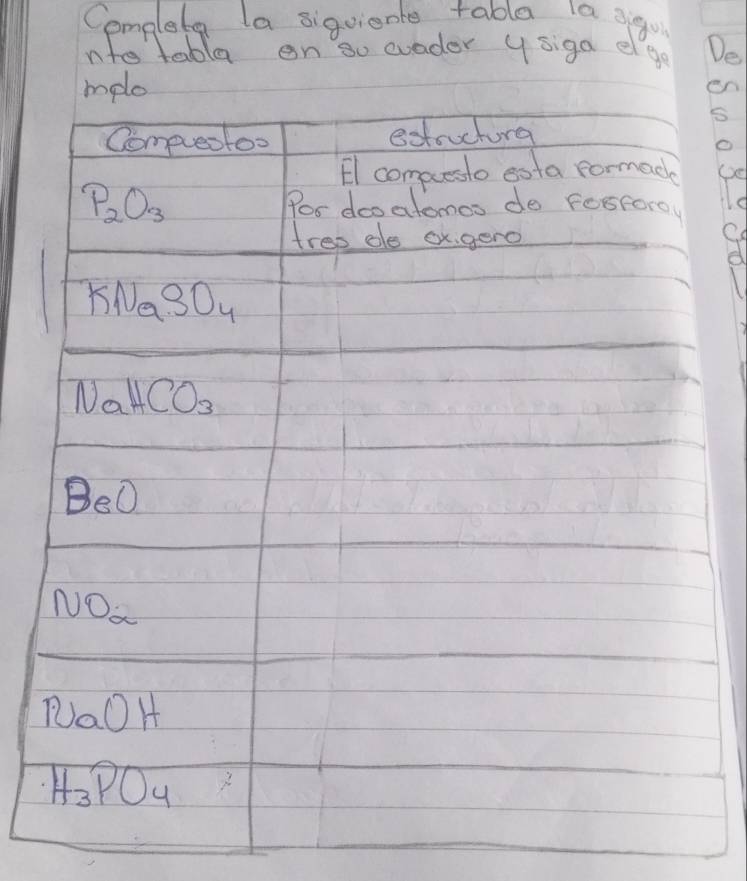 Completa la siguiente tabla la sigui
nte tabla en su cuader y siga el ge
mplo
Compuestos estructura
P₂O₃ El compuesto esta formade
Por dos atomos de fosforo y
tres de oxigeno
KNaSO₄
NaHCO₃
BeO
NO₂
NaOH
H₃PO₄
De
en
s
o